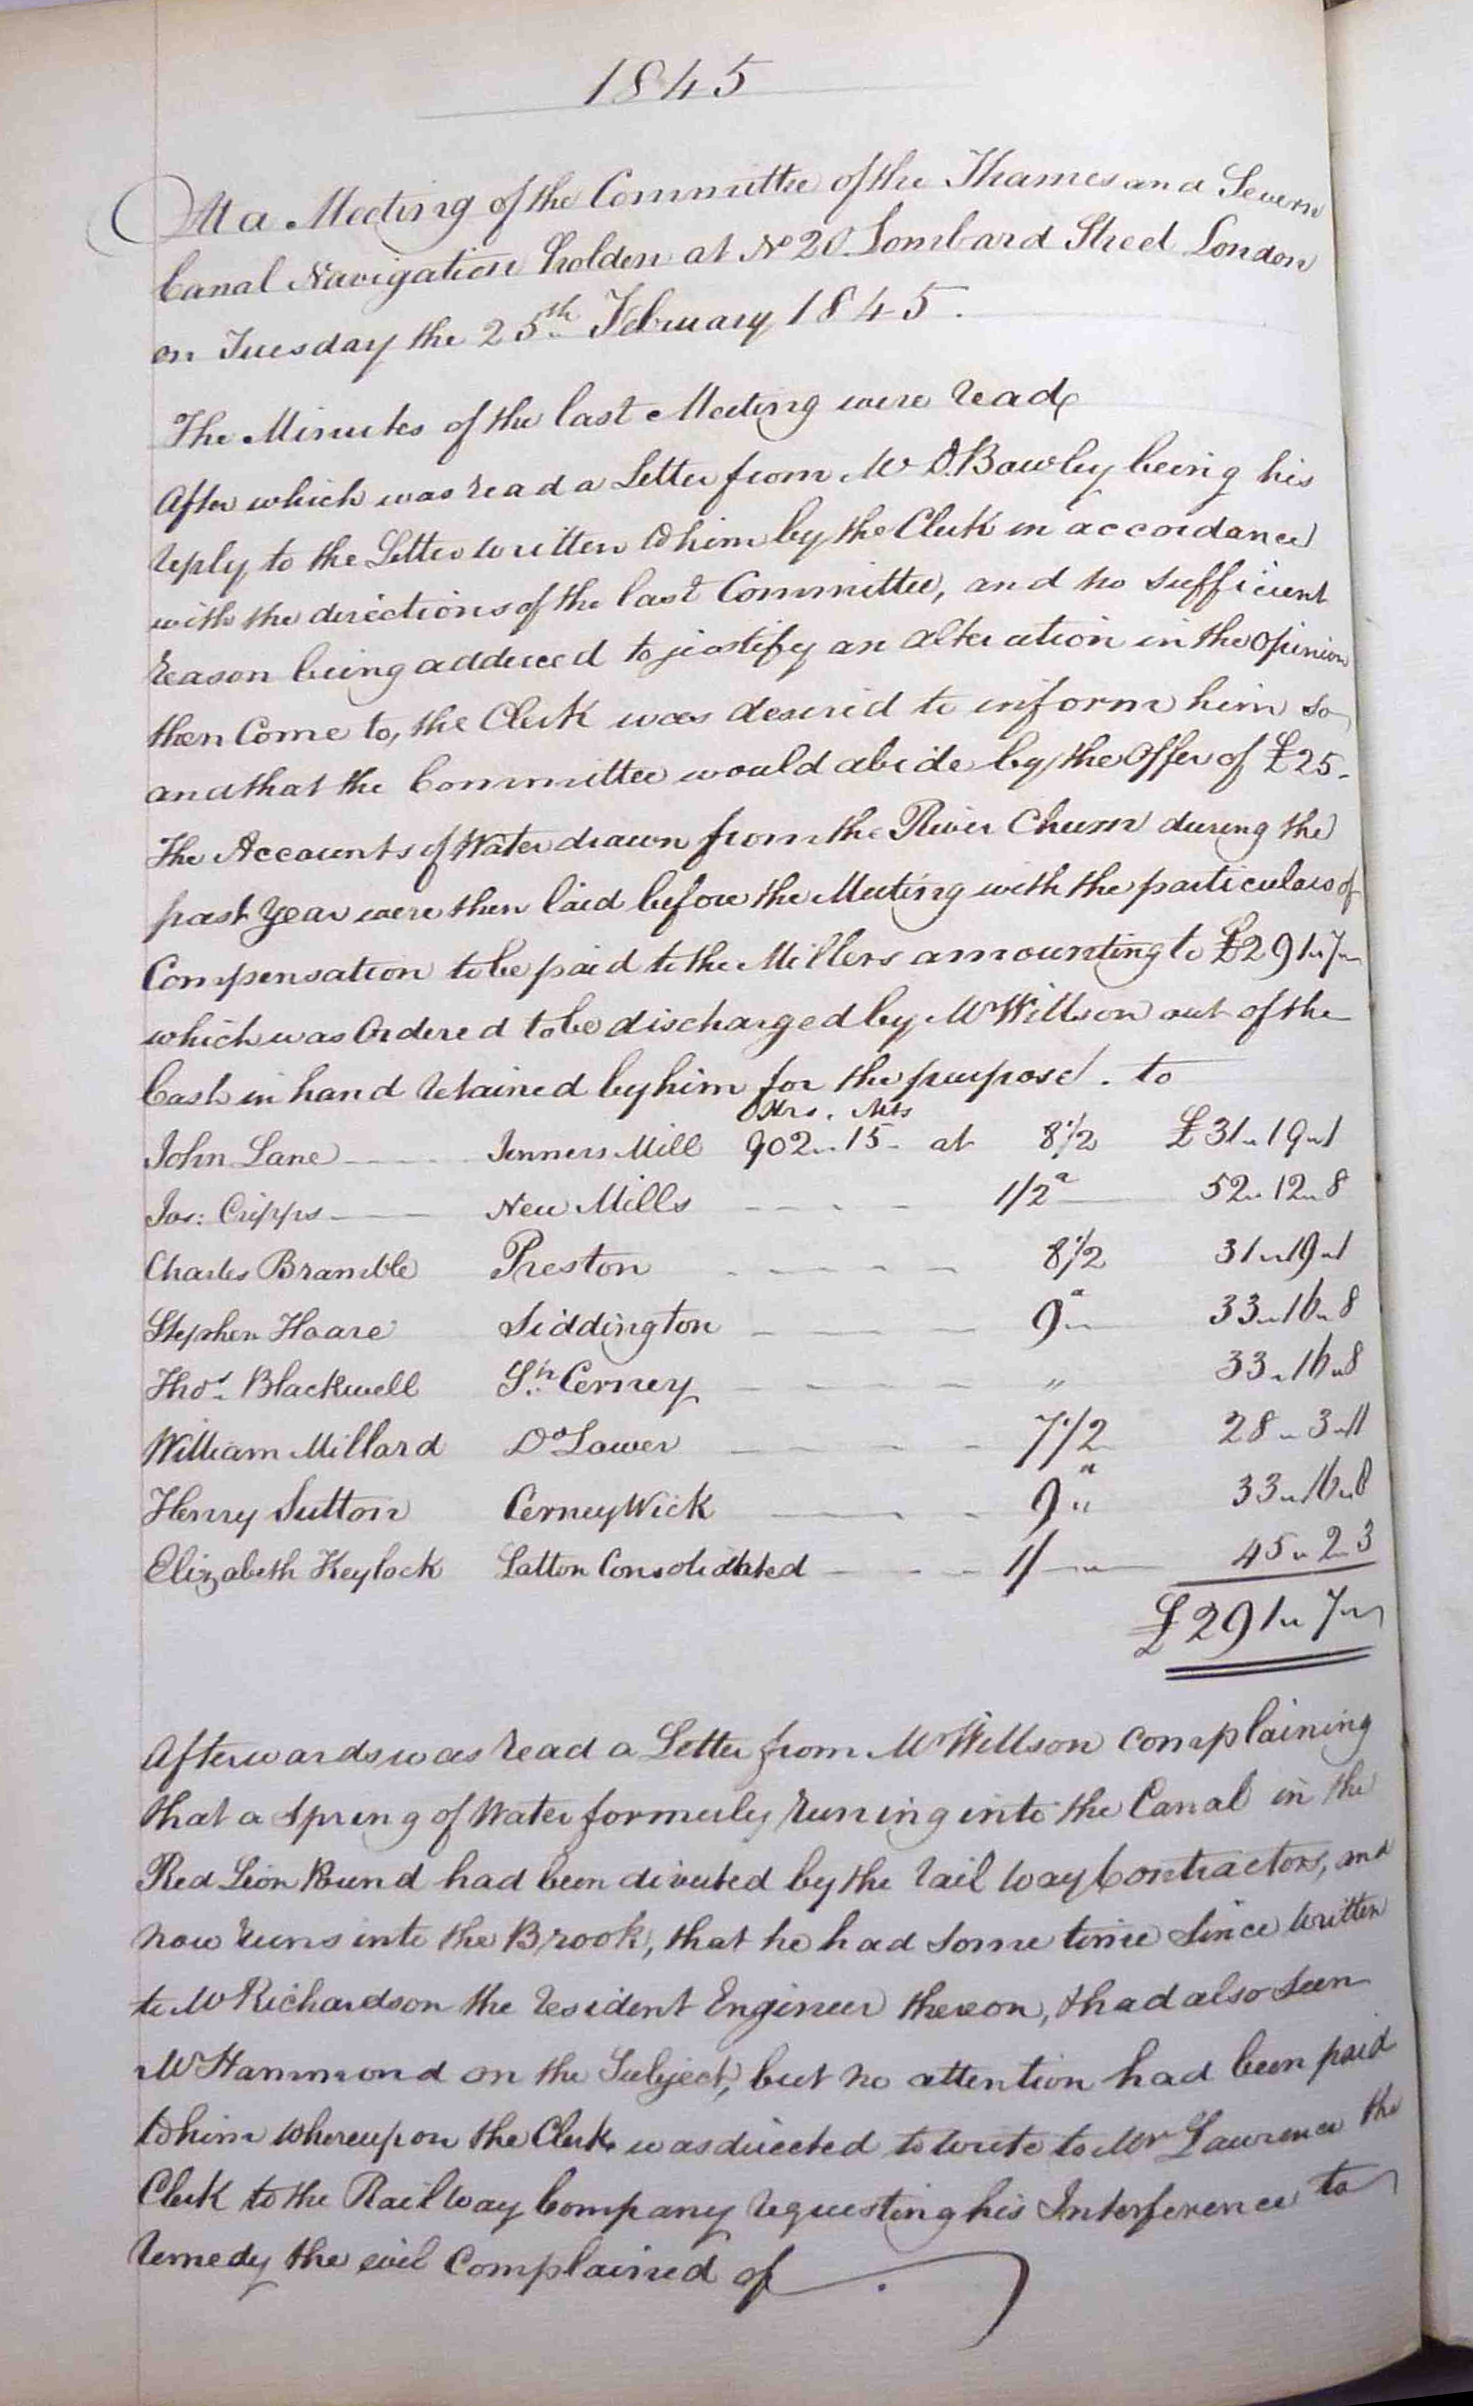 1845
At a Meeting of the Committee of the Thames and Severn
Canal Navigation holden at No 20 Lombard Street London
on Tuesday the 25th February 1845.
The Minutes of the last Meeting were read
After which was read a Letter from Mr D. Bowley being his
reply to the Letter written to him by the Clerk in accordance
with the directions of the last Committee, and no sufficient
reason being adduced to justify an alteration in the opinion
then Come to, the Clerk was desired to inform him so
and that the Committee would abide by the Offer of £25-
The Accounts of Water drawn from the River Churn during the
past Year were then laid before the Meeting with the particulars of
Compensation to be paid to the Millers amounting to £291"7"-
which was Ordered to be discharged by Mr Willson out of the
Cash in hand retained by him for the purpose. to
Hrs. Mts
John Lane Jenners Mill 902"15 - at 8½ £31"19"1
Jas: Cripps New Mills 1/2 52"12"8
Charles Bramble Preston 8½ 31"19"1
Stephen Hoare Siddington 9" 33"16"8
Thos. Blackwell Sh. Cerney " 33"16"8
William Millard Do Lower 7½ 28"3"11
Henry Sutton Cerney Wick 9" 33"16"8
Elizabeth Keylock Latton Consolidated 1/-" 45"2"3
£291"7"-
Afterwards was read a Letter from Mr Willson complaining
that a Spring of Water formerly runing into the Canal in the
Red Lion Pound had been diverted by the rail way Contractors, and
now runs into the Brook, that he had some time since written
to Mr Richardson the resident Engineer thereon, & had also seen
Mr Hammond on the Subject, but no attention had been paid
to him whereupon the Clerk was directed to write to Mr Lawrence the
Clerk to the Railway Company requesting his Interference to
remedy the evil Complained of